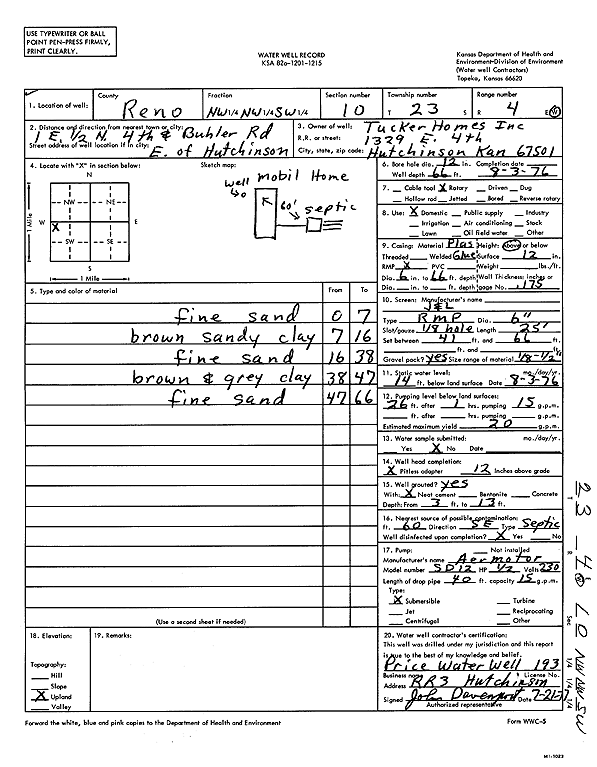 USE TYPEWRITER OR BALL
POINT PEN-PRESS FIRMLY,
PRINT CLEARLY.
WATER WELL RECORD
KSA 82a-1201-1215
Kansas Department of Health and
Environment-Division of Environment
(Water well Contractors)
Topeka, Kansas 66620
1. Location of well: County Reno Fraction NW 1/4 NW 1/4 SW 1/4 Section number 10 Township number T 23 S Range number R 4 E/W
2. Distance and direction from nearest town or city: 1 E. 1/2 N. 4th & Buhler Rd
Street address of well location if in city: E. of Hutchinson
3. Owner of well: Tucker Homes Inc
R.R. or street: 1329 E. 4th
City, state, zip code: Hutchinson Kan 67501
4. Locate with "X" in section below:
N
NW NE
W X E
SW SE
S
1 Mile
1 Mile
Sketch map:
well mobil Home
60' septic
5. Type and color of material From To
fine sand 0 7
brown sandy clay 7 16
fine sand 16 38
brown & grey clay 38 47
fine sand 47 66
(Use a second sheet if needed)
6. Bore hole dia. 12 in. Completion date 8-3-76
Well depth 66 ft.
7. Cable tool X Rotary Driven Dug
Hollow rod Jetted Bored Reverse rotary
8. Use: X Domestic Public supply Industry
Irrigation Air conditioning Stock
Lawn Oil field water Other
9. Casing: Material Plas Height: Above or below
Threaded Welded Glue Surface 12 in.
RMP X PVC Weight lbs./ft.
Dia. 6 in. to 66 ft. depth Wall Thickness: inches or
Dia. in. to ft. depth gage No. .175
10. Screen: Manufacturer's name J&L
Type RMP Dia. 6"
Slot/gauze 1/8 hole Length 25'
Set between 41 ft. and 66 ft.
ft. and ft.
Gravel pack? yes Size range of material 1/8-1/2"
11. Static water level: mo./day/yr.
14 ft. below land surface Date 8-3-76
12. Pumping level below land surfaces:
26 ft. after 1 hrs. pumping 15 g.p.m.
ft. after hrs. pumping g.p.m.
Estimated maximum yield 20 g.p.m.
13. Water sample submitted: mo./day/yr.
Yes X No Date
14. Well head completion:
X Pitless adapter 12 Inches above grade
15. Well grouted? yes
With: X Neat cement Bentonite Concrete
Depth: From 3 ft. to 13 ft.
16. Nearest source of possible contamination:
ft. 60 Direction SE Type Septic
Well disinfected upon completion? X Yes No
17. Pump: Not installed
Manufacturer's name Aermotor
Model number SD12 HP 1/2 Volts 230
Length of drop pipe 40 ft. capacity 15 g.p.m.
Type:
X Submersible Turbine
Jet Reciprocating
Centrifugal Other
18. Elevation:
Topography:
Hill
Slope
X Upland
Valley
19. Remarks:
20. Water well contractor's certification:
This well was drilled under my jurisdiction and this report
is true to the best of my knowledge and belief.
Price Water Well 193
Business name License No.
Address RR3 Hutchinson
Signed John Davenport Date 7-21-77
Authorized representative
Forward the white, blue and pink copies to the Department of Health and Environment
Form WWC-5
T 23 - R 4 W Sec 10 NW NW SW
1/4 1/4 1/4